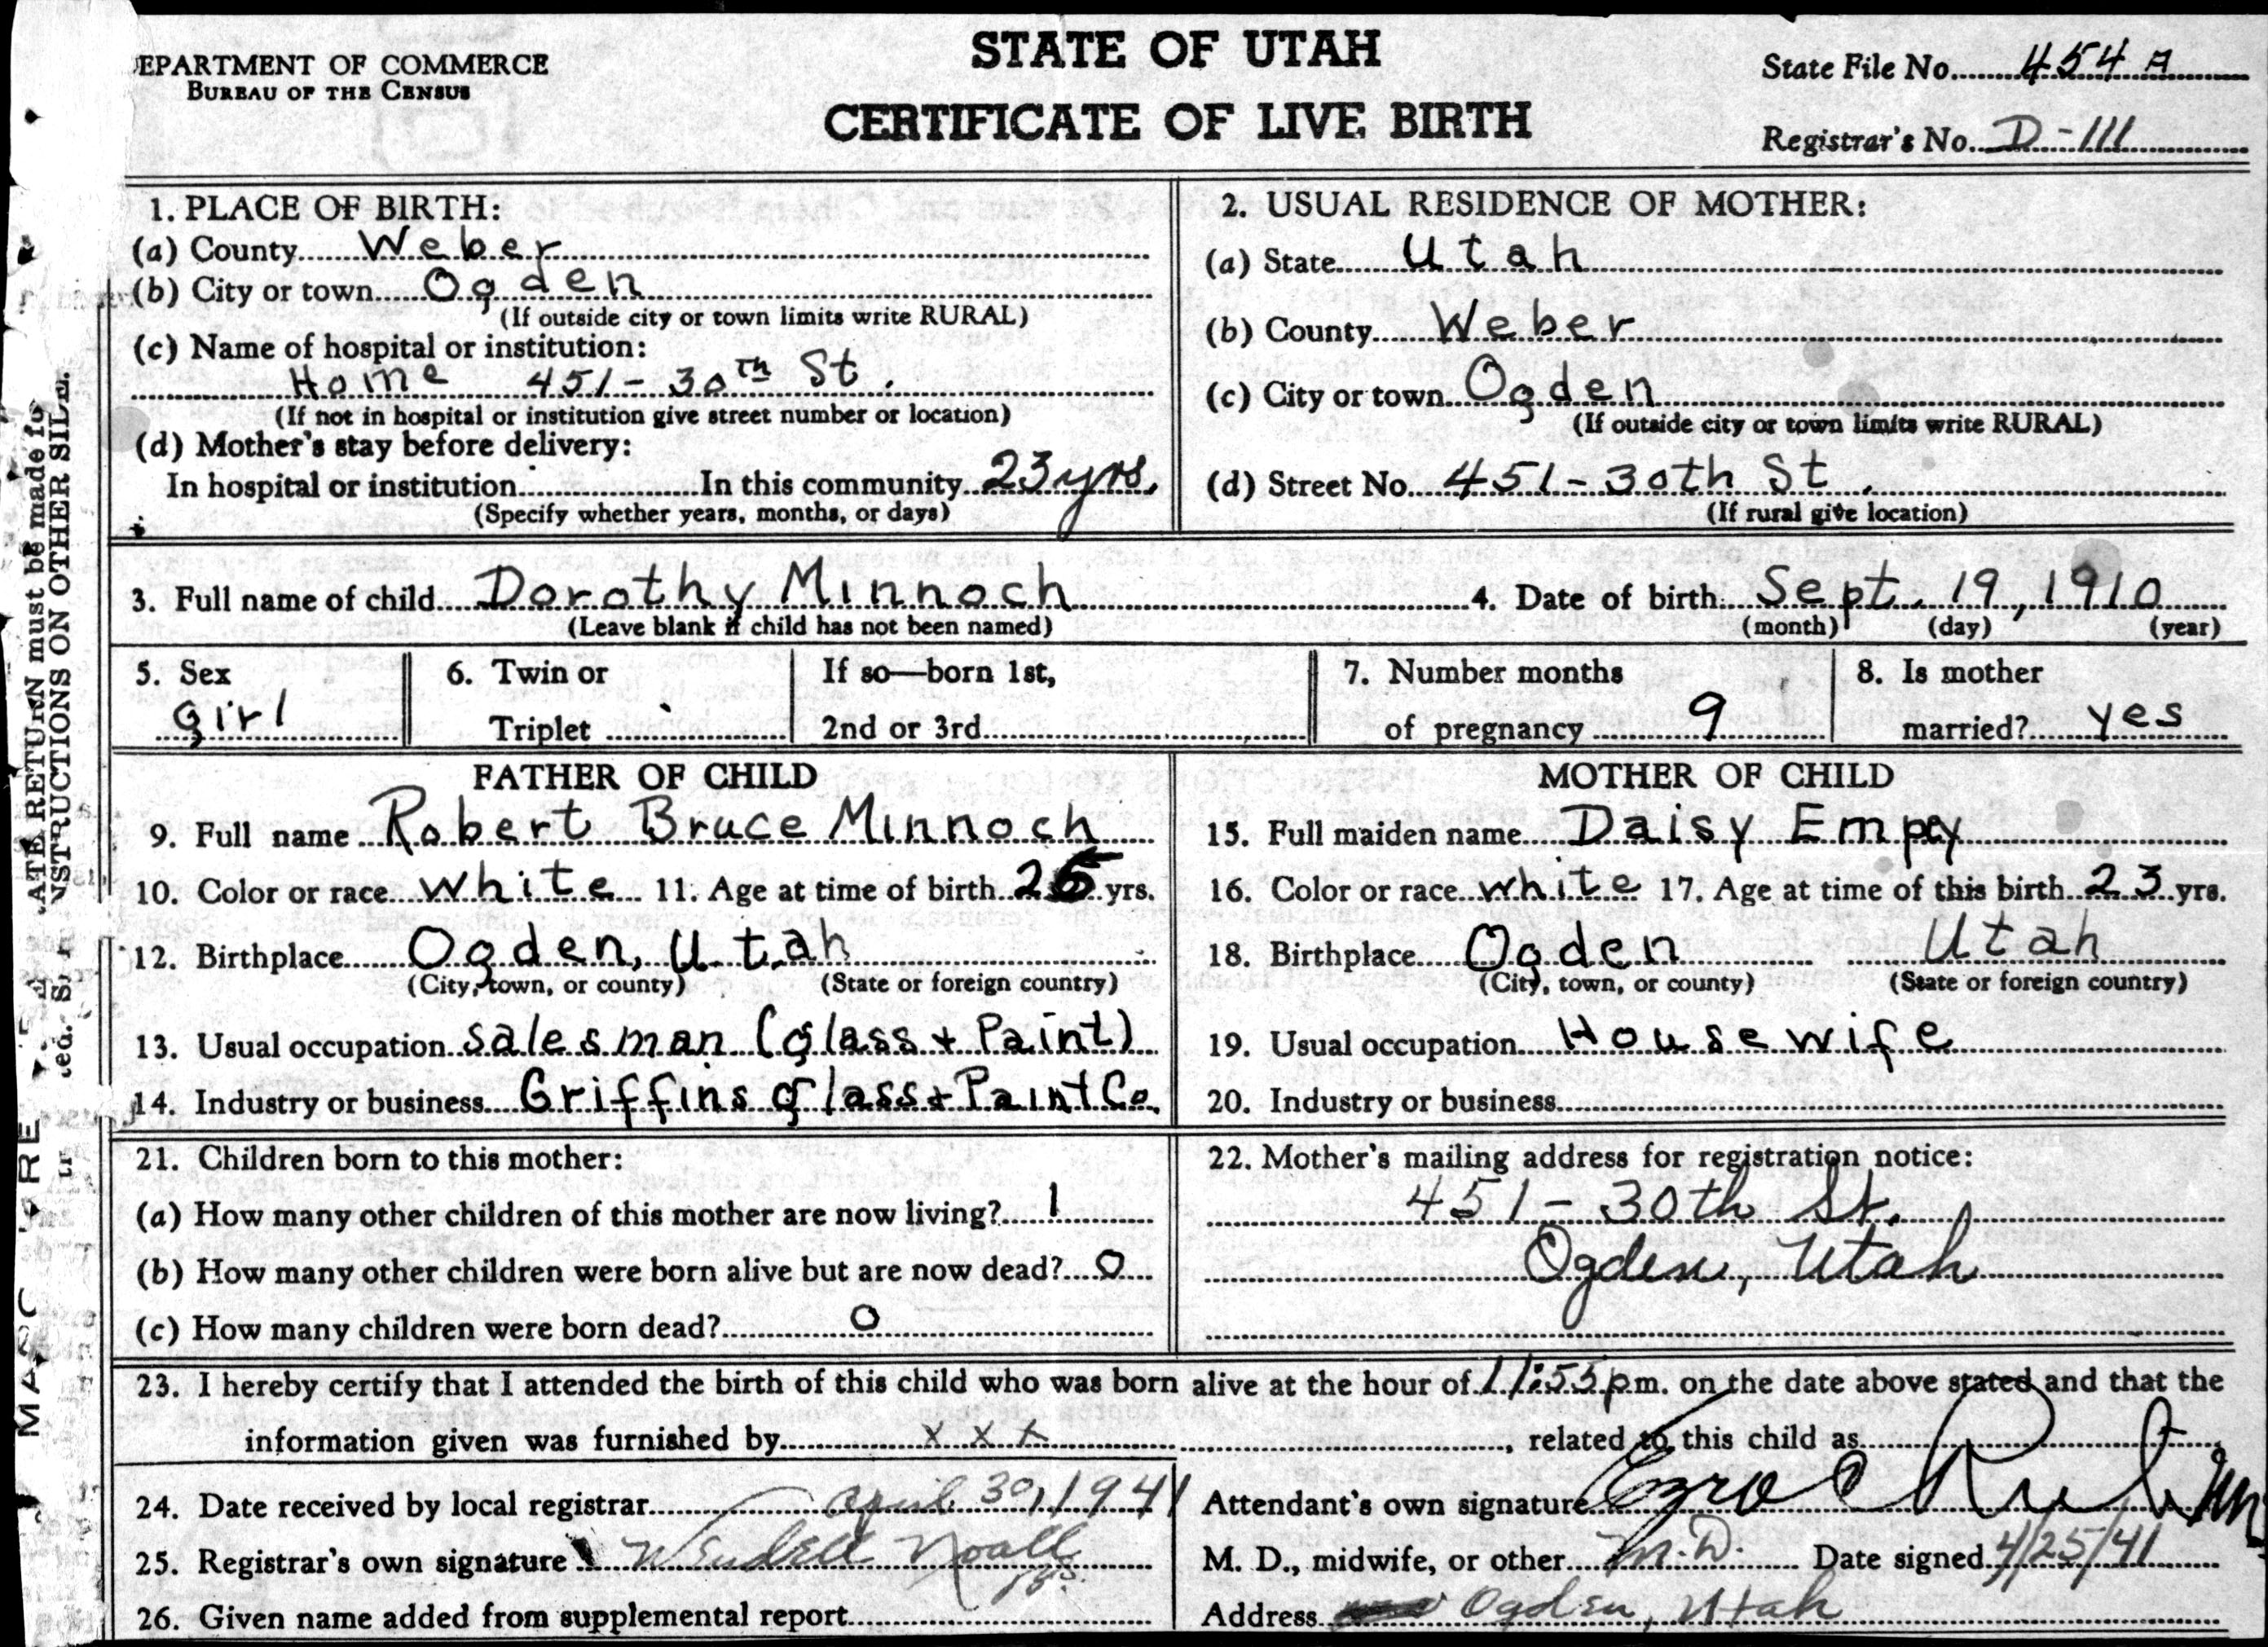 DEPARTMENT OF COMMERCE
BUREAU OF THE CENSUS
STATE OF UTAH
CERTIFICATE OF LIVE BIRTH
State File No. 454 A
Registrar's No. D-111
1. PLACE OF BIRTH:
(a) County Weber
(b) City or town Ogden
(If outside city or town limits write RURAL)
(c) Name of hospital or institution:
Home 451-30th St.
(If not in hospital or institution give street number or location)
(d) Mother's stay before delivery:
In hospital or institution In this community 23 yrs.
(Specify whether years, months, or days)
2. USUAL RESIDENCE OF MOTHER:
(a) State Utah
(b) County Weber
(c) City or town Ogden
(If outside city or town limits write RURAL)
(d) Street No. 451-30th St.
(If rural give location)
3. Full name of child Dorothy Minnoch 4. Date of birth: Sept. 19, 1910
(Leave blank if child has not been named) (month) (day) (year)
5. Sex
Girl
6. Twin or
Triplet
If so—born 1st,
2nd or 3rd
7. Number months
of pregnancy 9
8. Is mother
married? yes
FATHER OF CHILD
9. Full name Robert Bruce Minnoch
10. Color or race white 11. Age at time of birth yrs.
12. Birthplace Ogden, Utah
(City, town, or county) (State or foreign country)
13. Usual occupation salesman (glass + Paint)
14. Industry or business Griffins glass + Paint Co.
MOTHER OF CHILD
15. Full maiden name Daisy Empey
16. Color or race white 17. Age at time of this birth 23 yrs.
18. Birthplace Ogden Utah
(City, town, or county) (State or foreign country)
19. Usual occupation Housewife
20. Industry or business
21. Children born to this mother:
(a) How many other children of this mother are now living? 1
(b) How many other children were born alive but are now dead? 0
(c) How many children were born dead? 0
22. Mother's mailing address for registration notice:
451-30th St.
Ogden, Utah
23. I hereby certify that I attended the birth of this child who was born alive at the hour of 11:55 p.m. on the date above stated and that the
information given was furnished by x x x, related to this child as
24. Date received by local registrar April 30, 1941
25. Registrar's own signature Wendell Noall
26. Given name added from supplemental report
Attendant's own signature Ezra C Rich
M. D., midwife, or other M.D. Date signed 4/25/41
Address Ogden, Utah
ATE RETURN must be made fo
NSTRUCTIONS ON OTHER SIDE.